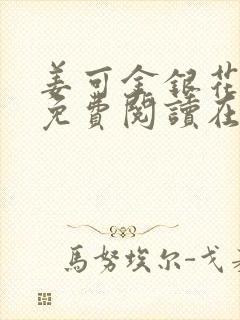 姜可金銀花
免費閱讀在
馬努埃尔-戈